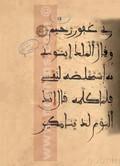 ربى غفور رحيم
وقال الملك ائتونى
به استخلصه لنفسى
فلما كلمه قال انك
اليوم لدينا مكين